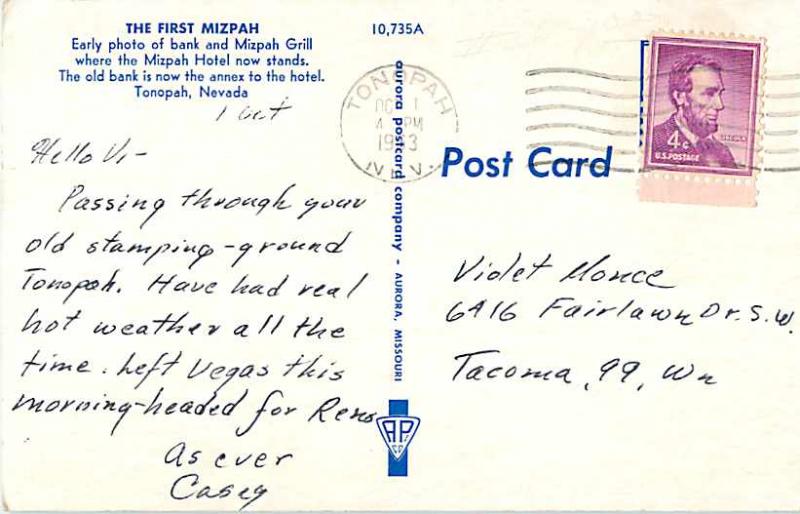 THE FIRST MIZPAH
Early photo of bank and Mizpah Grill
where the Mizpah Hotel now stands.
The old bank is now the annex to the hotel.
Tonopah, Nevada
10,735A
1 Oct
Hello Vi-
Passing through your
old stamping-ground
Tonopah. Have had real
hot weather all the
time. Left Vegas this
morning-headed for Reno
As ever
Casey
aurora postcard company - AURORA, MISSOURI
APC
CO
TONOPAH
OCT 1
4 PM
1963
NEV.
LINCOLN
4¢
U.S. POSTAGE
Post Card
Violet Monce
6416 Fairlawn Dr. S.W.
Tacoma, 99, Wn